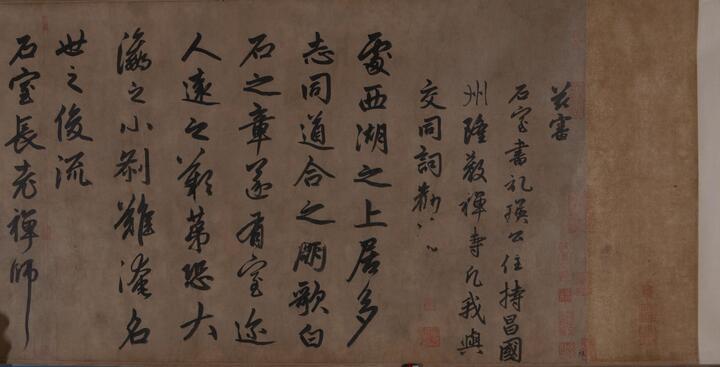 茲審
石室書記瑛公住持昌國
州隆教禪寺凡我與
交同詞勸
處西湖之上居多
志同道合之朋歌白
石之章遂有室迩
人遠之歎第恐大
瀛之小剎難淹名
世之俊流
石室長老禪師